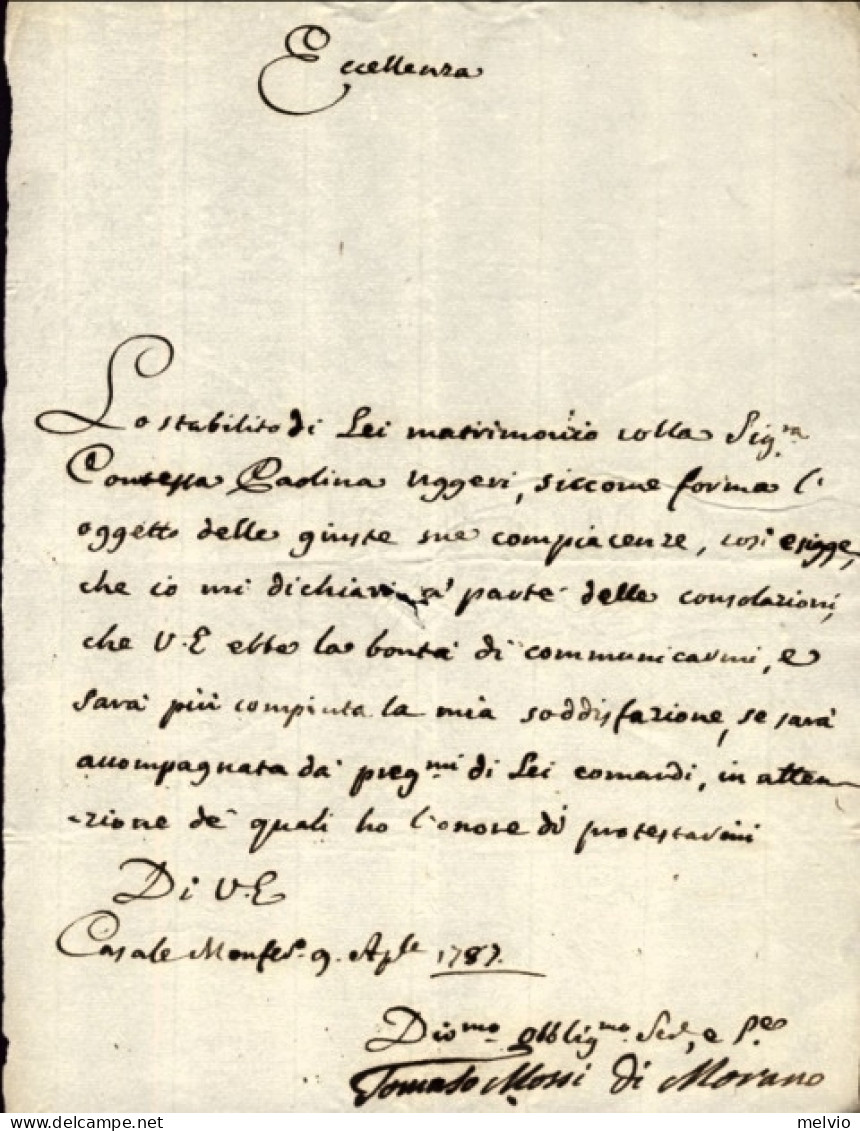 Eccellenza
Lo stabilito di Lei matrimonio colla Sig.ra
Contessa Paolina Uggeri, siccome forma l'
oggetto delle giuste sue compiacenze, così esigge,
che io mi dichiari a' parte delle consolazioni,
che V.E ebbe la bontà di communicarmi, e
sarà più compiuta la mia soddisfazione, se sarà
accompagnata da' preg.mi di Lei comandi, in atten
-zione de' quali ho l'onore di protestarmi
Di V.E
Casale Monfer.o 9. Aple 1787.
Div.mo obblig.mo Sed, e S.re
Tomaso Mossi di Morano
melvio